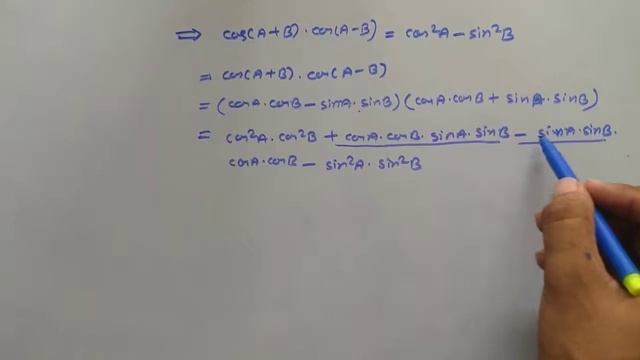 ⇒ cos(A+B)·cos(A−B) = cos²A − sin²B
= cos(A+B)·cos(A−B)
= (cosA·cosB − sinA·sinB)(cosA·cosB + sinA·sinB)
= cos²A·cos²B + cosA·cosB·sinA·sinB − sinA·sinB·
cosA·cosB − sin²A·sin²B